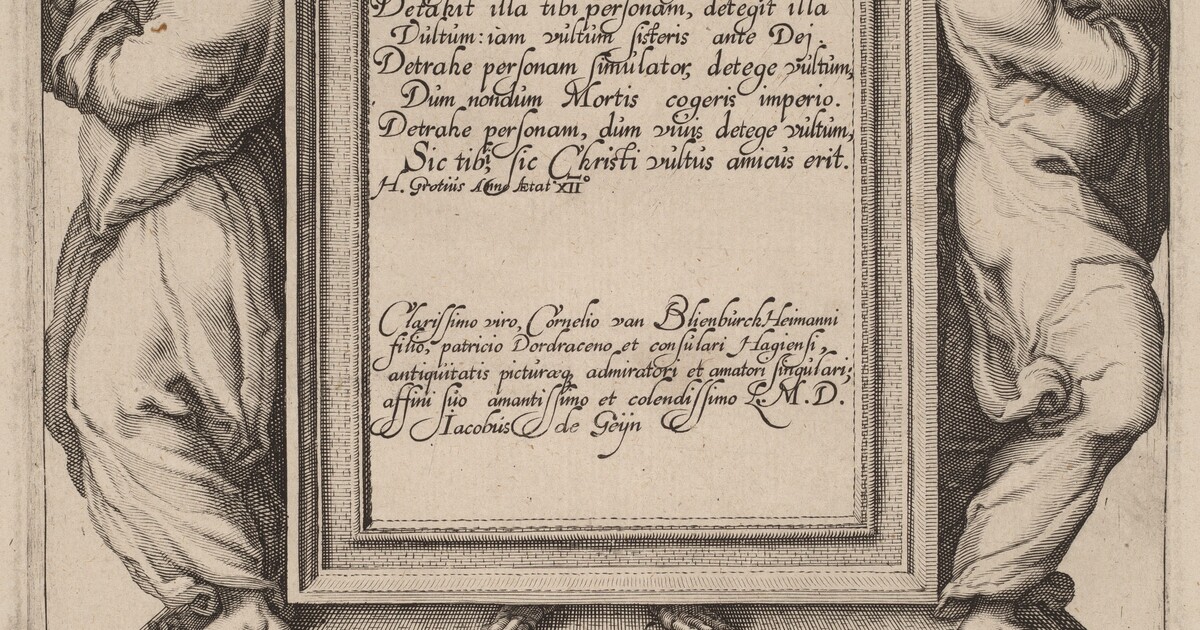 Detahit illa tibi personam, detegit illa
Vultum: iam vultum sisteris ante Dej.
Detrahe personam simulator, detege vultum,
Dum nondum Mortis cogeris imperio.
Detrahe personam, dum viuis detege vultum,
Sic tibi, sic Christi vultus amicus erit.
H. Grotius Anno Ætat XII°
Clarissimo viro, Cornelio van Blienburch Heimanni
filio, patricio Dordraceno et consulari Hagiensi,
antiquitatis picturæq, admiratori et amatori singulari;
affini suo amantissimo et colendissimo L. M. D.
Iacobus de Geijn